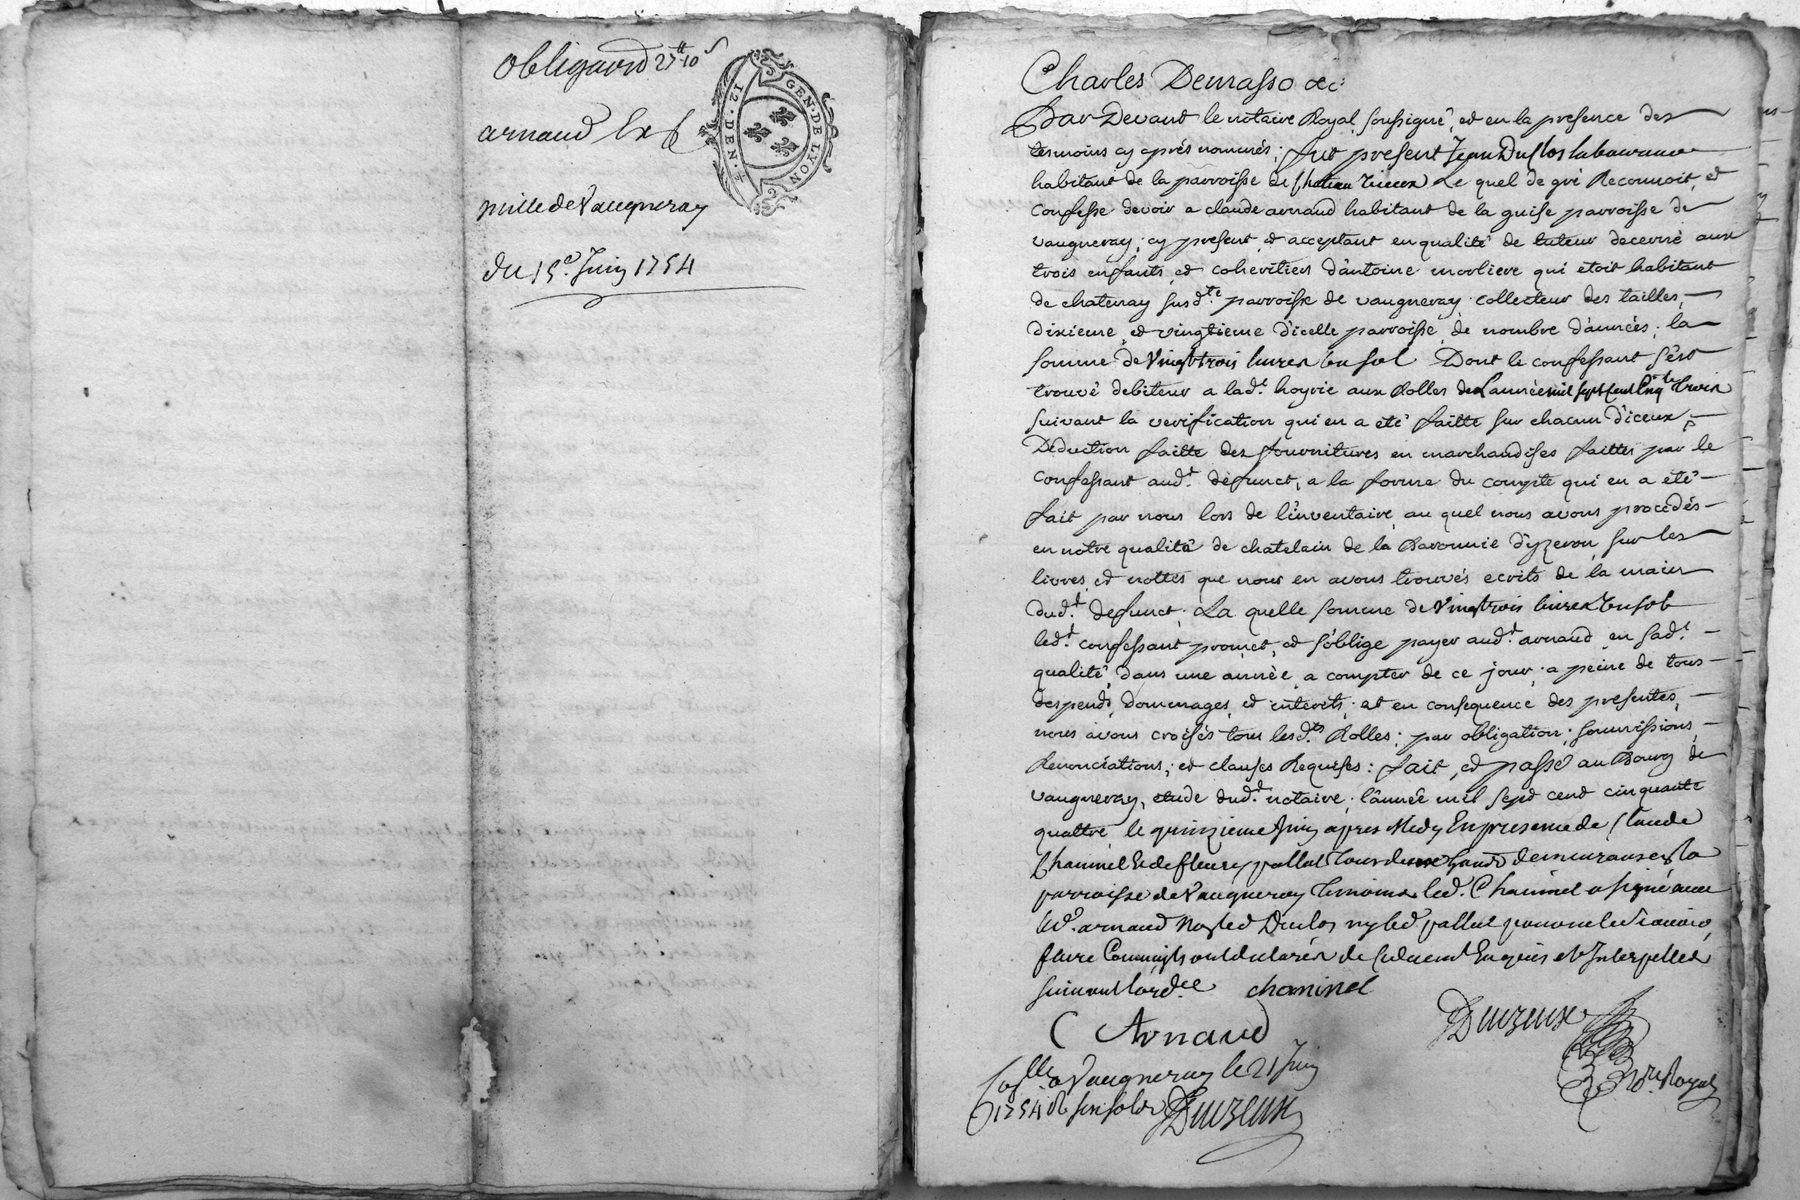 obligaõn 23# 10s
arnaud
de Vaugneray
du 15e. Juin 1754
GEN·DE LYON
12·DEN·
Charles Demasso &c:
Par Devant le notaire Royal soussigné, et en la presence des
temoins cy aprés nommés; fut present Jean Duclos laboureur
habitant de la parroisse de Chateau vieux Le quel de gré Reconnoit, et
confesse devoir a claude arnaud habitant de la guise parroisse de
vaugneray; cy present, et acceptant en qualité de tuteur decerné aux
trois enfants, et coheritiers d'antoine morliere qui etoit habitant
de chatenay susd.te parroisse de vaugneray collecteur des tailles,
dixieme, et vingtieme d'icelle parroisse, de nombre d'années; la
somme de Vingt trois livres un sol Dont le confessant s'est
trouvé debiteur a lad.t hoyrie aux Rolles de L'année mil sept Cent Cinq.te trois
suivant la verification qui en a eté faitte sur chacun d'iceux,
Déduction faitte des fournitures en marchandises faittes par le
confessant aud.t defunct, a la forme du compte qui en a eté
fait par nous lors de l'inventaire, au quel nous avons procedés
en notre qualité de chatelain de la Baronnie d'yzeron, sur les
livres et nottes que nous en avons trouvés ecrits de la main
dud.t defunct; La quelle somme de Vingt trois livres un sol
led.t confessant promet, et s'oblige payer aud.t arnaud, en sad.t
qualité, dans une année, a compter de ce jour, a peine de tous
despends, dommages, et interets; et en consequence des presentes,
nous avons croisés tous lesd.ts Rolles; par obligation; soumissions,
Renonciations; et clauses Requises: fait, et passé au Bourg de
vaugneray, etude dud.t notaire; l'année mil sept cent cinquante
quattre le quinzieme Juin apres Midy En presence de Claude
Chaninel et de fleury pallut tous deux demeurans en la
parroisse de Vaugneray temoins led. Chaninel a signé avec
led. arnaud Non led Duclos ny led pallut pour ne le sçavoir
faire Comm'ils ont declarés de ce duement Enquis et Interpellés
suivant l'ord.ce chaninel
C Arnaud
Duvzeux
N.re Royal
Coll.lé a Vaugneray le 21 Juin
1754 R six sols Duvzeux